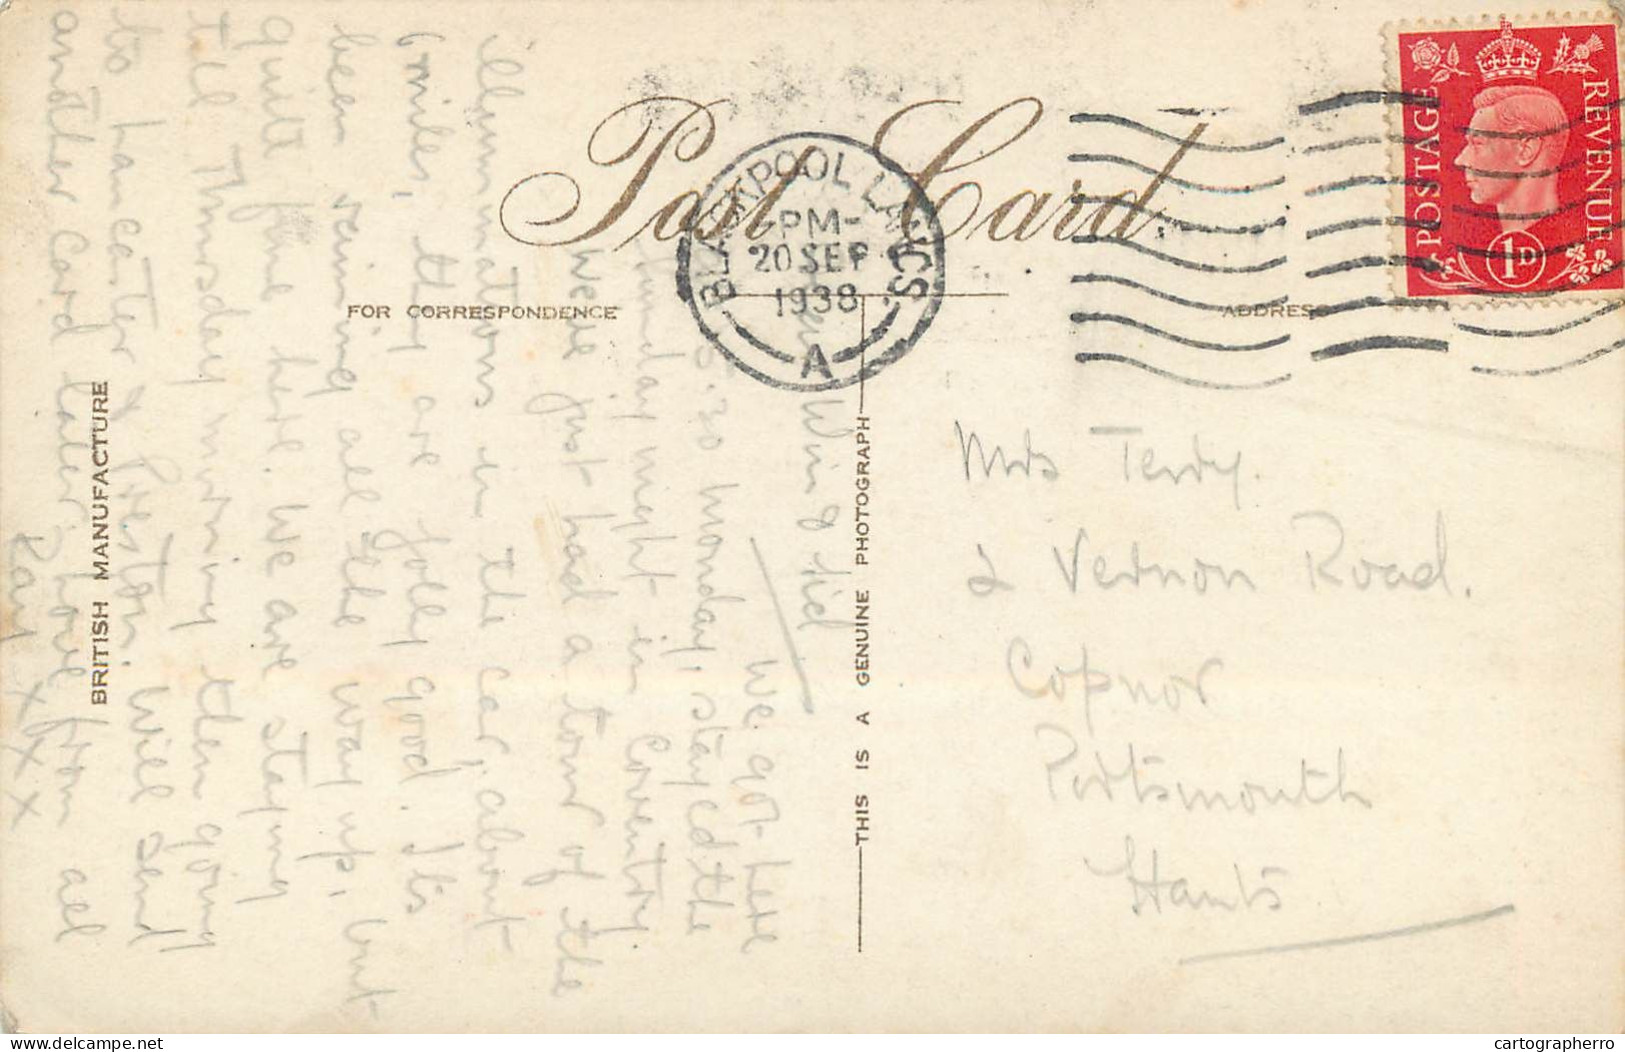 Post Card
FOR CORRESPONDENCE
ADDRESS
BRITISH MANUFACTURE
THIS IS A GENUINE PHOTOGRAPH
BLACKPOOL LANCS
-PM-
20 SEP
1938
A
POSTAGE
REVENUE
1D
Win & Sid
We got here
5.30 Monday, stayed the
Sunday night in Coventry.
Weve just had a tour of the
illuminations in the car, about
6 miles, they are jolly good. Its
been raining all the way up, but
quite fine here. We are staying
till Thursday morning then going
to Lancaster & Preston. Will send
another card later, love from all
Ray x x x x
Mrs Terry.
2 Vernon Road.
Copnor
Portsmouth
Hants
Delcampe.net
cartographerro